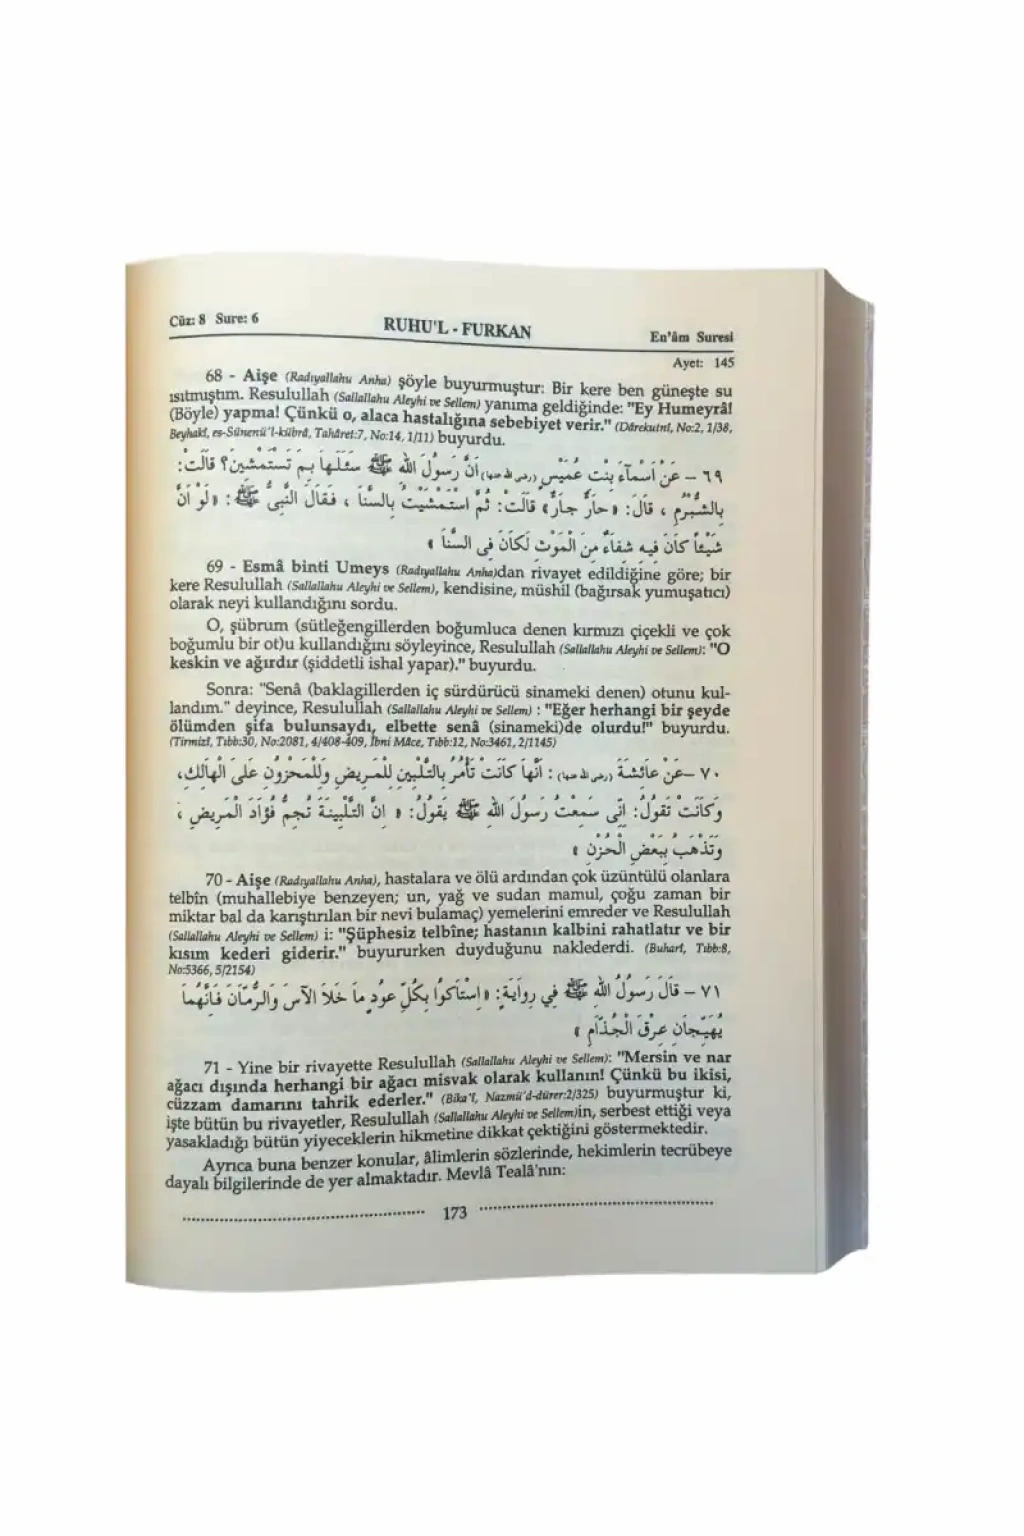 Cüz: 8 Sure: 6
RUHU'L - FURKAN
En'âm Suresi
Ayet: 145
68 - Aişe (Radıyallahu Anha) şöyle buyurmuştur: Bir kere ben güneşte su
ısıtmıştım. Resulullah (Sallallahu Aleyhi ve Sellem) yanıma geldiğinde: "Ey Humeyrâ!
(Böyle) yapma! Çünkü o, alaca hastalığına sebebiyet verir." (Dârekutnî, No:2, 1/38,
Beyhakî, es-Sünenü'l-kübrâ, Tahâret:7, No:14, 1/11) buyurdu.
٦٩ – عَنْ اَسْمَآءَ بِنْتِ عُمَيْسٍ (رضى الله عنها) اَنَّ رَسُولَ اللهِ ﷺ سَئَلَهَا بِمَ تَسْتَمْشِينَ؟ قَالَتْ:
بِالشُّبْرُمِ ، قَالَ: «حَارٌّ جَارٌّ» قَالَتْ: ثُمَّ اسْتَمْشَيْتُ بِالسَّنَا ، فَقَالَ النَّبِىُّ ﷺ: «لَوْ اَنَّ
شَيْئًا كَانَ فِيهِ شِفَاءٌ مِنَ الْمَوْتِ لَكَانَ فِى السَّنَا »
69 - Esmâ binti Umeys (Radıyallahu Anha)dan rivayet edildiğine göre; bir
kere Resulullah (Sallallahu Aleyhi ve Sellem), kendisine, müshil (bağırsak yumuşatıcı)
olarak neyi kullandığını sordu.
O, şübrum (sütleğengillerden boğumluca denen kırmızı çiçekli ve çok
boğumlu bir ot)u kullandığını söyleyince, Resulullah (Sallallahu Aleyhi ve Sellem): "O
keskin ve ağırdır (şiddetli ishal yapar)." buyurdu.
Sonra: "Senâ (baklagillerden iç sürdürücü sinameki denen) otunu kul-
landım." deyince, Resulullah (Sallallahu Aleyhi ve Sellem) : "Eğer herhangi bir şeyde
ölümden şifa bulunsaydı, elbette senâ (sinameki)de olurdu!" buyurdu.
(Tirmizî, Tıbb:30, No:2081, 4/408-409, İbni Mâce, Tıbb:12, No:3461, 2/1145)
٧٠ –عَنْ عَائِشَةَ (رضى الله عنها) : اَنَّهَا كَانَتْ تَأْمُرُ بِالتَّلْبِينِ لِلْمَرِيضِ وَلِلْمَحْزُونِ عَلَى الْهَالِكِ،
وَكَانَتْ تَقُولُ: اِنِّى سَمِعْتُ رَسُولَ اللهِ ﷺ يَقُولُ: « اِنَّ التَّلْبِينَةَ تُجِمُّ فُؤَادَ الْمَرِيضِ ،
وَتَذْهَبُ بِبَعْضِ الْحُزْنِ »
70 - Aişe (Radıyallahu Anha), hastalara ve ölü ardından çok üzüntülü olanlara
telbîn (muhallebiye benzeyen; un, yağ ve sudan mamul, çoğu zaman bir
miktar bal da karıştırılan bir nevi bulamaç) yemelerini emreder ve Resulullah
(Sallallahu Aleyhi ve Sellem) i: "Şüphesiz telbîne; hastanın kalbini rahatlatır ve bir
kısım kederi giderir." buyururken duyduğunu naklederdi. (Buharî, Tıbb:8,
No:5366, 5/2154)
٧١ – قَالَ رَسُولُ اللهِ ﷺ فِي رِوَايَةٍ: «اِسْتَاكُوا بِكُلِّ عُودٍ مَا خَلَا الْآسَ وَالرُّمَّانَ فَاِنَّهُمَا
يُهَيِّجَانِ عِرْقَ الْجُذَامِ »
71 - Yine bir rivayette Resulullah (Sallallahu Aleyhi ve Sellem): "Mersin ve nar
ağacı dışında herhangi bir ağacı misvak olarak kullanın! Çünkü bu ikisi,
cüzzam damarını tahrik ederler." (Bika'î, Nazmü'd-dürer:2/325) buyurmuştur ki,
işte bütün bu rivayetler, Resulullah (Sallallahu Aleyhi ve Sellem)in, serbest ettiği veya
yasakladığı bütün yiyeceklerin hikmetine dikkat çektiğini göstermektedir.
Ayrıca buna benzer konular, âlimlerin sözlerinde, hekimlerin tecrübeye
dayalı bilgilerinde de yer almaktadır. Mevlâ Tealâ'nın:
173